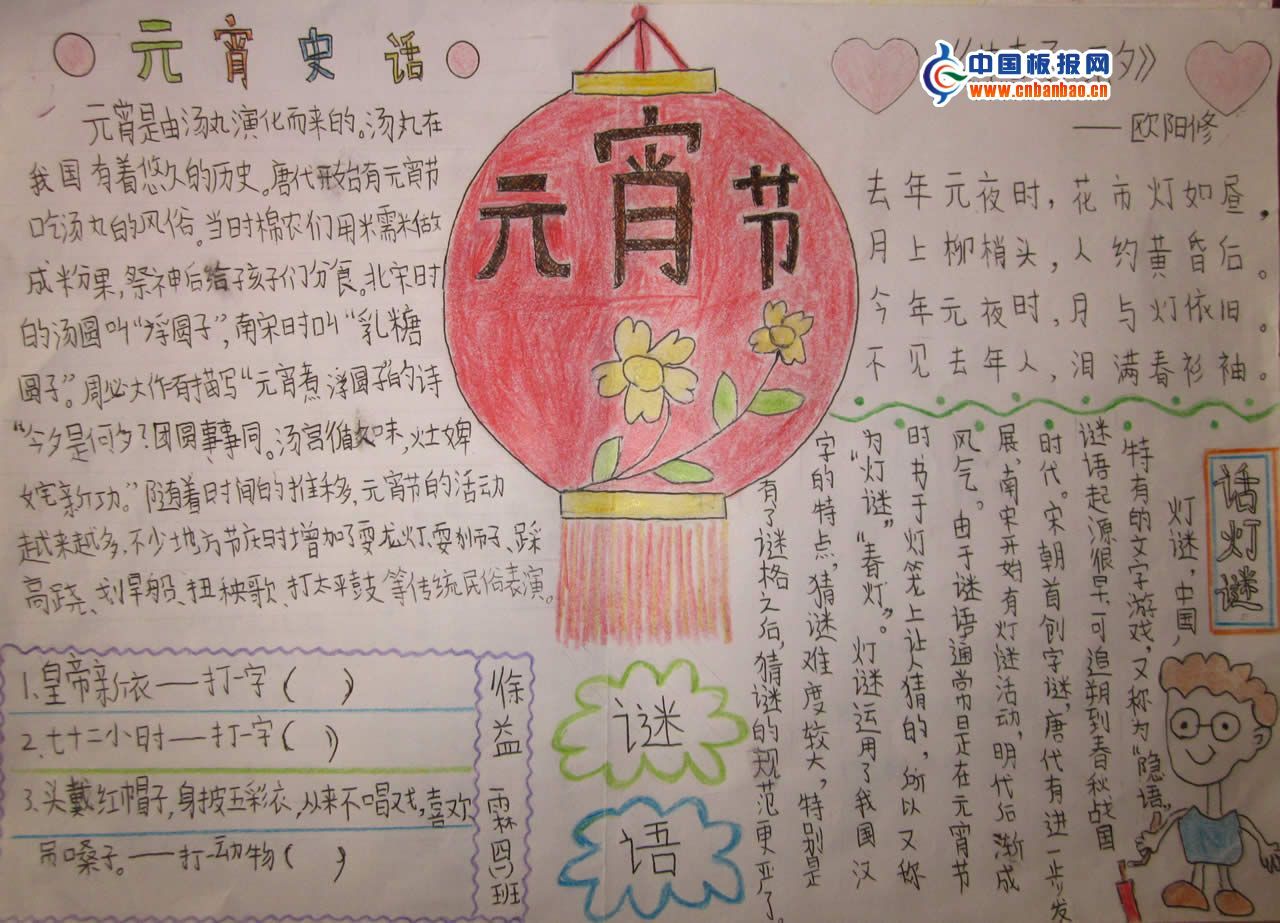 元宵史话
元宵是由汤丸演化而来的。汤丸在
我国有着悠久的历史。唐代开始有元宵节
吃汤丸的风俗。当时棉农们用米需米做
成粉果,祭神后给孩子们分食。北宋时
的汤圆叫“浮圆子”,南宋时叫“乳糖
圆子”。周必大作有描写“元宵煮浮圆子”的诗
“今夕是何夕?团圆事事同。汤官循旧味,灶婢
诧新功。”随着时间的推移,元宵节的活动
越来越多,不少地方节庆时增加了耍龙灯、耍狮子、踩
高跷、划旱船、扭秧歌、打太平鼓等传统民俗表演。
元宵节
中国板报网
www.cnbanbao.cn
夕》
——欧阳修
去年元夜时,花市灯如昼,
月上柳梢头,人约黄昏后。
今年元夜时,月与灯依旧。
不见去年人,泪满春衫袖。
话灯谜
灯谜,中国,
特有的文字游戏,又称为“隐语”
谜语起源很早,可追朔到春秋战国
时代。宋朝首创字谜,唐代有进一步发
展,南宋开始有灯谜活动,明代后渐成
风气。由于谜语通常是在元宵节
时书于灯笼上让人猜的,所以又称
为“灯谜”“春灯”。灯谜运用了我国汉
字的特点,猜谜难度较大,特别是
有了谜格之后,猜谜的规范更严了。
1、皇帝新衣——打一字( )
2、七十二小时——打一字( )
3、头戴红帽子,身披五彩衣,从来不唱戏,喜欢
吊嗓子。——打一动物( )
徐益霖四(1)班
谜
语